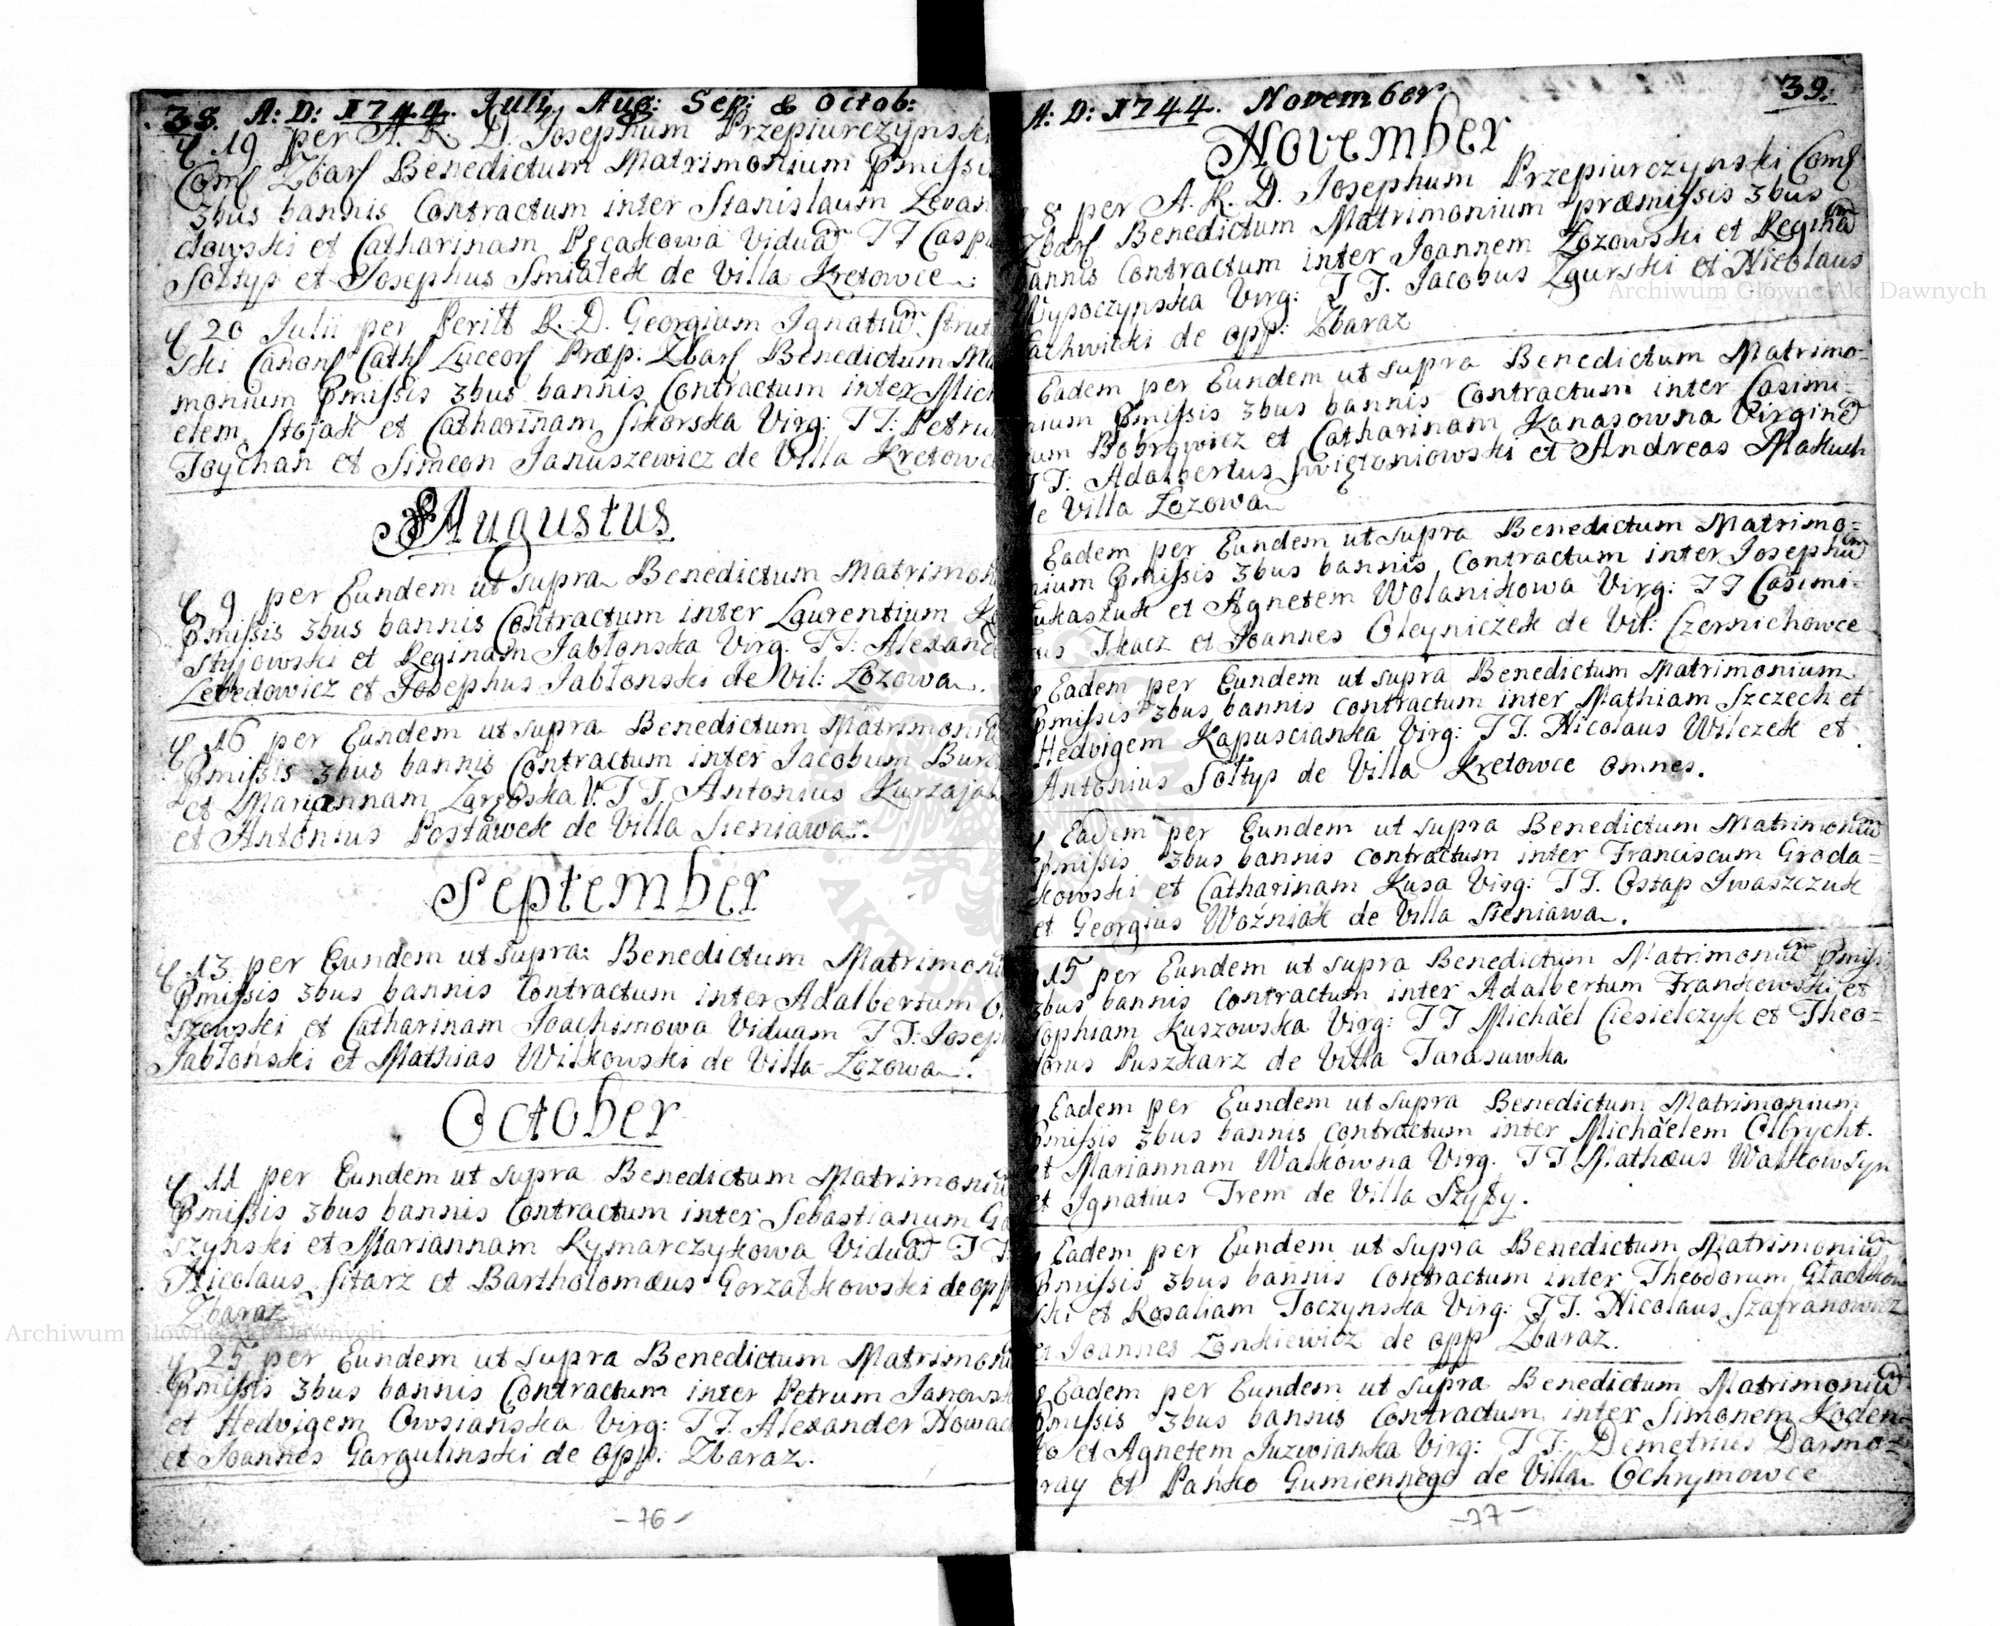 38. A: D: 1744. Julij, Aug: Sep: & Octob:
19 per A. R. D. Josephum Przepiurczynski
Comſ Zbarſ Benedictum Matrimonium Pmiſsis
3bus bannis Contractum inter Stanislaum Levan
dowski et Catharinam Pęcakowa Viduam TT Caspa
Sołtys et Josephus Smiałek de Villa Kretowce.
20 Julii per Perill R. D. Georgium Ignatium Strut
ski Canonſ Cathſ Luceorſ Præp: Zbarſ Benedictum Ma
monium Pmiſsis 3bus bannis Contractum inter Mich
elem Stojak et Catharinam Sikorska Virg: TT: Petrus
Toychan et Simeon Januszewicz de Villa Kretowce
Augustus
9 per Eundem ut supra Benedictum Matrimon
Pmiſsis 3bus bannis Contractum inter Laurentium
et Reginam Jabłonska Virg: TT: Alexand
Lebedowicz et Josephus Jabłonski de Vil: Łozowa.
16 per Eundem ut supra Benedictum Matrimoniu
Pmiſsis 3bus bannis Contractum inter Jacobum Bur
et Mariannam V. TT Antonius
et Antonius Postawek de Villa Sieniawa.
September
13 per Eundem ut supra: Benedictum Matrimoni
Pmiſsis 3bus bannis Contractum inter Adalbertum
szewski et Catharinam Joachimowa Viduam TT: Josep
Jabłoński et Mathias Wilkowski de Villa Łozowa.
October
11 per Eundem ut supra Benedictum Matrimoniu
Pmiſsis 3bus bannis Contractum inter Sebastianum
szynski et Mariannam Rymarczykowa Viduam TT
Nicolaus Sitarz et Bartholomæus Gorzałkowski de opp
Zbaraz
25 per Eundem ut supra Benedictum Matrimoni
Pmiſsis 3bus bannis Contractum inter Petrum Janowsk
et Hedvigem Owsianska Virg: TT. Alexander Nowac
et Joannes Gargulinski de opp: Zbaraz.
-76-
A: D: 1744. November. 39.
November
8 per A. R. D. Josephum Przepiurczynski Comſ
Zbarſ Benedictum Matrimonium præmiſsis 3bus
annis Contractum inter Joannem Łozowski et Reginam
Wypoczynska Virg: TT. Jacobus Zgurski et Nicolaus
de opp: Zbaraz
Eadem per Eundem ut supra Benedictum Matrimo=
nium Pmiſsis 3bus bannis Contractum inter Casimi=
rum Bobrowicz et Catharinam Kanasowna Virginem
TT: Adalbertus Swiętoniowski et Andreas Makuch
de Villa Łozowa
Eadem per Eundem ut supra Benedictum Matrimo=
nium Pmiſsis 3bus bannis Contractum inter Josephum
ukaszuk et Agnetem Wolanikowa Virg: TT Casimi=
rus Tkacz et Joannes Oleyniczek de Vil: Czernichowce
Eadem per Eundem ut supra Benedictum Matrimonium
Pmiſsis 3bus bannis contractum inter Mathiam Szczech et
Hedvigem Kapuscianka Virg: TT. Nicolaus Wilczek et
Antonius Sołtys de Villa Kretowce omnes.
Eadem per Eundem ut supra Benedictum Matrimonium
Pmiſsis 3bus bannis contractum inter Franciscum Groda=
kowski et Catharinam Kusa Virg: TT. Ostap Iwaszczuk
et Georgius Woźniak de Villa Sieniawa.
15 per Eundem ut supra Benedictum Matrimonium Pmiſsis
3bus bannis Contractum inter Adalbertum Frankowski et
Sophiam Kuszowska Virg: TT Michäel Ciesielczyk et Theo=
dorus Puszkarz de Villa Tarasuwka
Eadem per Eundem ut supra Benedictum Matrimonium
Pmiſsis 3bus bannis contractum inter Michäelem Olbrycht.
et Mariannam Walkowna Virg. TT Mathæus Walkow Syn
et Ignatius Trem de Villa Szyły.
Eadem per Eundem ut supra Benedictum Matrimonium
Pmiſsis 3bus bannis Contractum inter Theodorum Głachkow
ski et Rosaliam Toczynska Virg: TT. Nicolaus Szafranowicz
et Joannes Zonkiewicz de opp Zbaraz.
Eadem per Eundem ut supra Benedictum Matrimonium
Pmiſsis 3bus bannis Contractum inter Simonem Koden=
ko et Agnetem Juzwianka Virg: TT: Demetrius Darmo=
ray et Pańko Gumiennego de Villa Ochrymowce
-77-
Archiwum Główne Akt Dawnych
Archiwum Główne Akt Dawnych